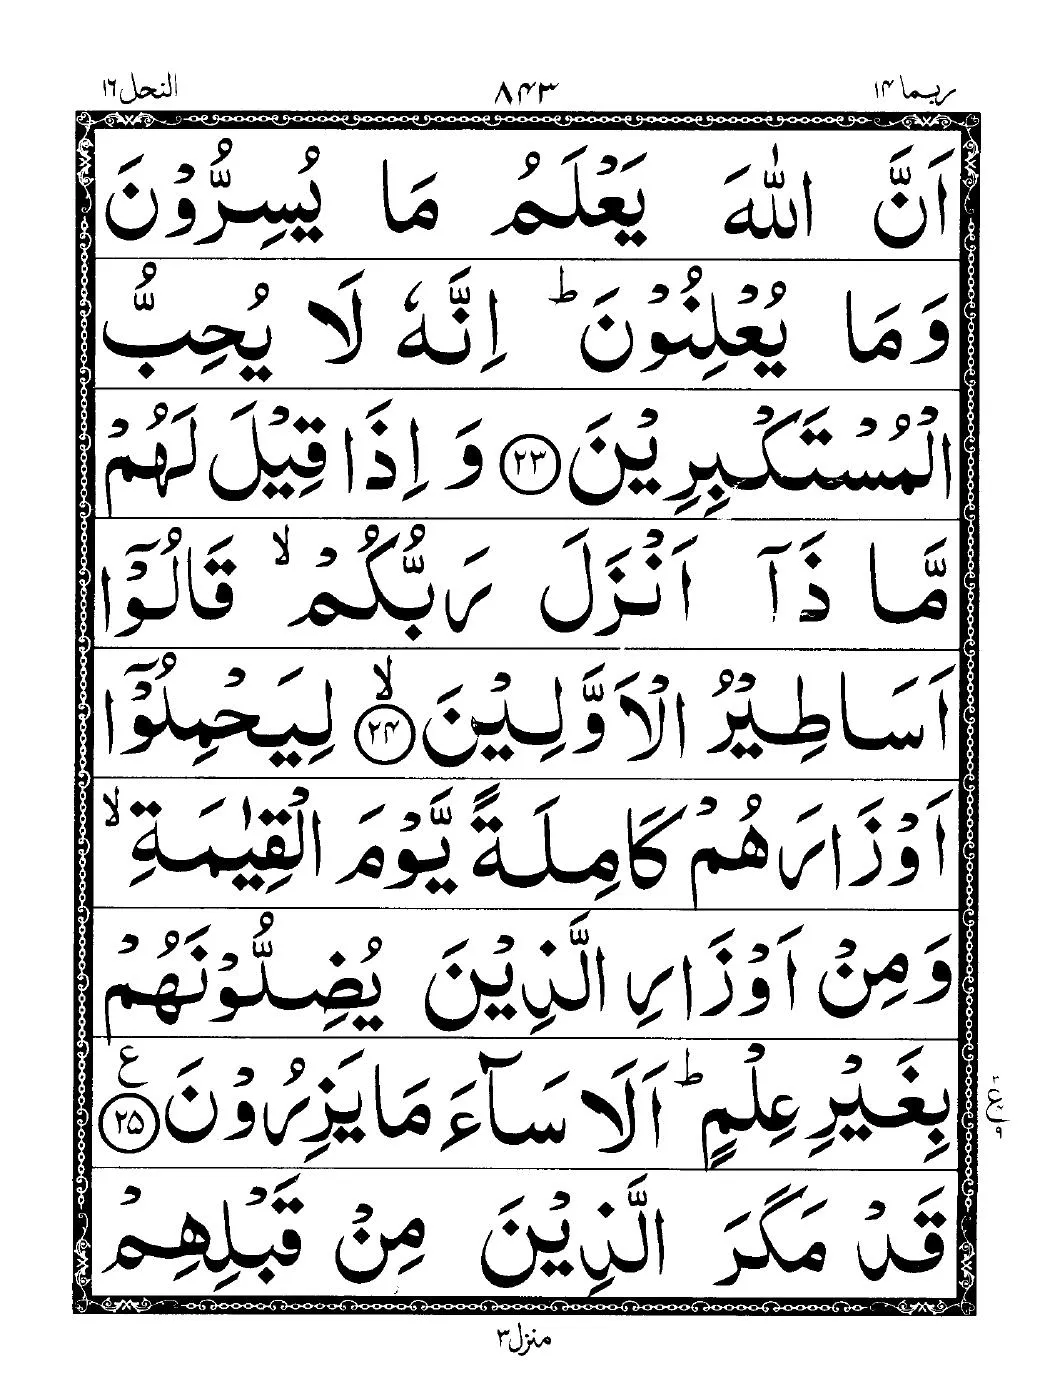 ربما ۱۴
۸۴۳
النحل ۱۶
اَنَّ اللّٰهَ يَعْلَمُ مَا يُسِرُّوْنَ
وَمَا يُعْلِنُوْنَ ؕ اِنَّهٗ لَا يُحِبُّ
الْمُسْتَكْبِرِيْنَ ﴿۲۳﴾ وَاِذَا قِيْلَ لَهُمْ
مَّا ذَاۤ اَنْزَلَ رَبُّكُمْ ۙ قَالُوْۤا
اَسَاطِيْرُ الْاَوَّلِيْنَ ﴿۲۴﴾ ۙ لِيَحْمِلُوْۤا
اَوْزَارَهُمْ كَامِلَةً يَّوْمَ الْقِيٰمَةِ ۙ
وَمِنْ اَوْزَارِ الَّذِيْنَ يُضِلُّوْنَهُمْ
بِغَيْرِ عِلْمٍ ؕ اَلَا سَآءَ مَا يَزِرُوْنَ ﴿۲۵﴾ ع
قَدْ مَكَرَ الَّذِيْنَ مِنْ قَبْلِهِمْ
منزل ۳